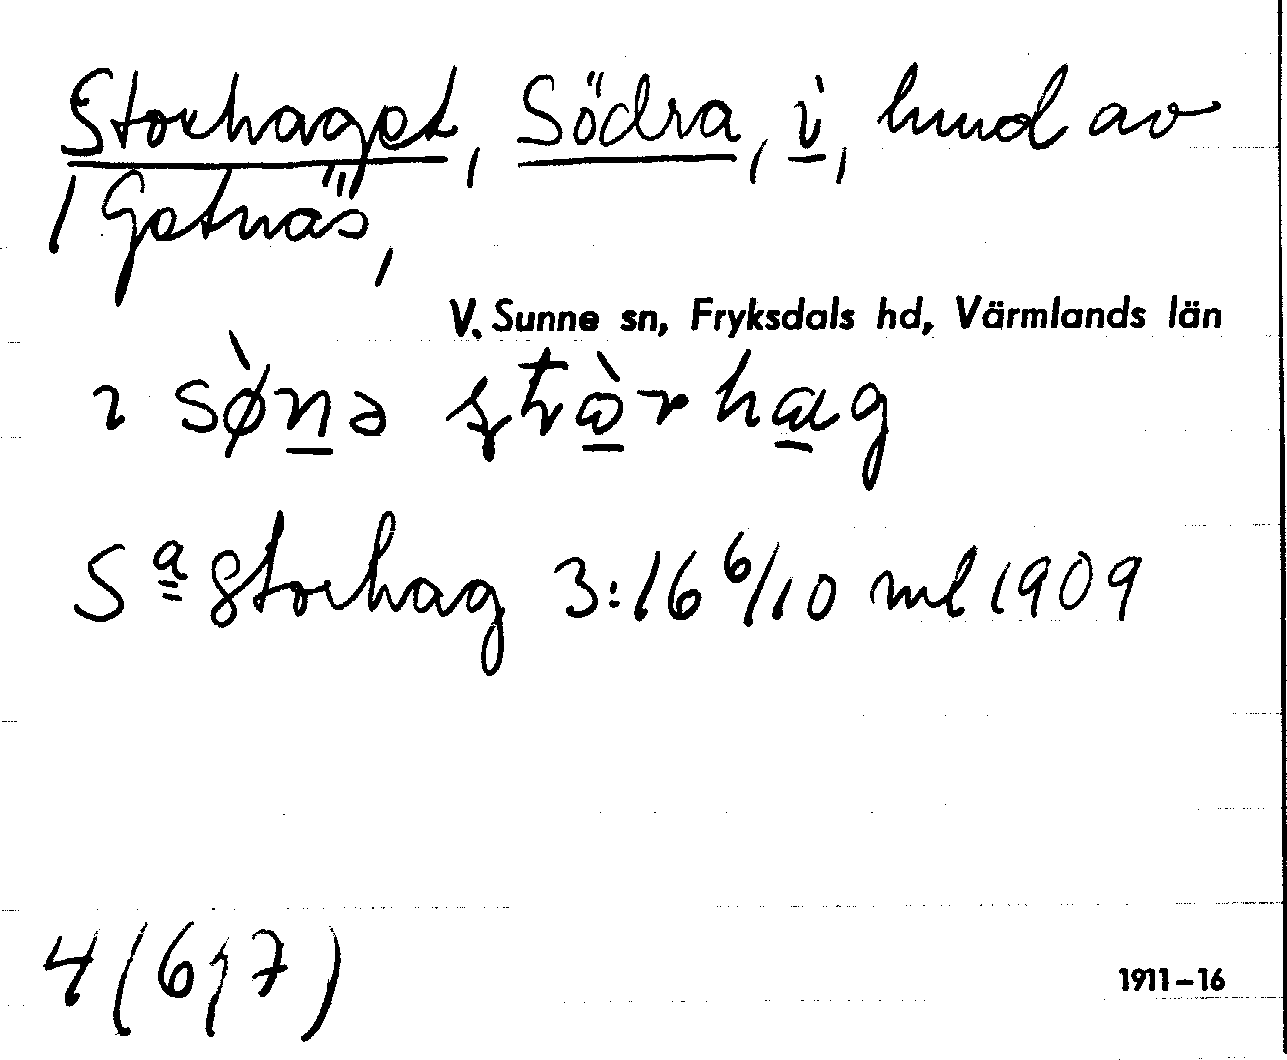 Storhaget, Södra, i, hmd av
1 Getnäs,
V. Sunne sn, Fryksdals hd, Värmlands län
ı sø̀nə stòrhag
Sª Storhag 3:16 6/10 ml 1909
4(6,7)
1911–16